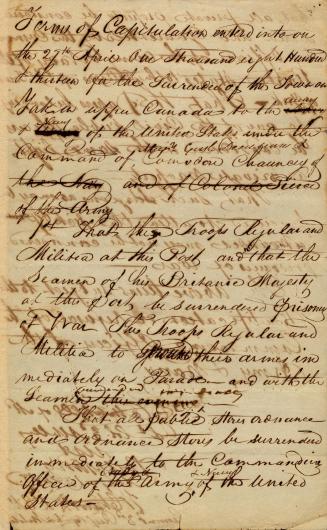 Terms of Capitulation enterd into on
the 27th April One Thousand eight Hundred
& thirteen for the Surrender of the Town on
York in upper Canada to the Army
& Navy of the United States under the
Majr Genl Dearborn &
Command of Comodore Chauncey of
the Navy and of Colonel Pierce
of the Army
1st That the Troops Regular and
Militia at this Post and that the
Seamen of his Britanic Majesty
at this Post, be surrendered Prisoners
of War The Troops Regular and
Militia to Ground their arms in
mediately on Parade and with the
Seamen this evening
That all Public Stores ordnance
and ordnance Stores be surrendered
immediately to the Commanding
& Navy
Officer of the Army of the United
States